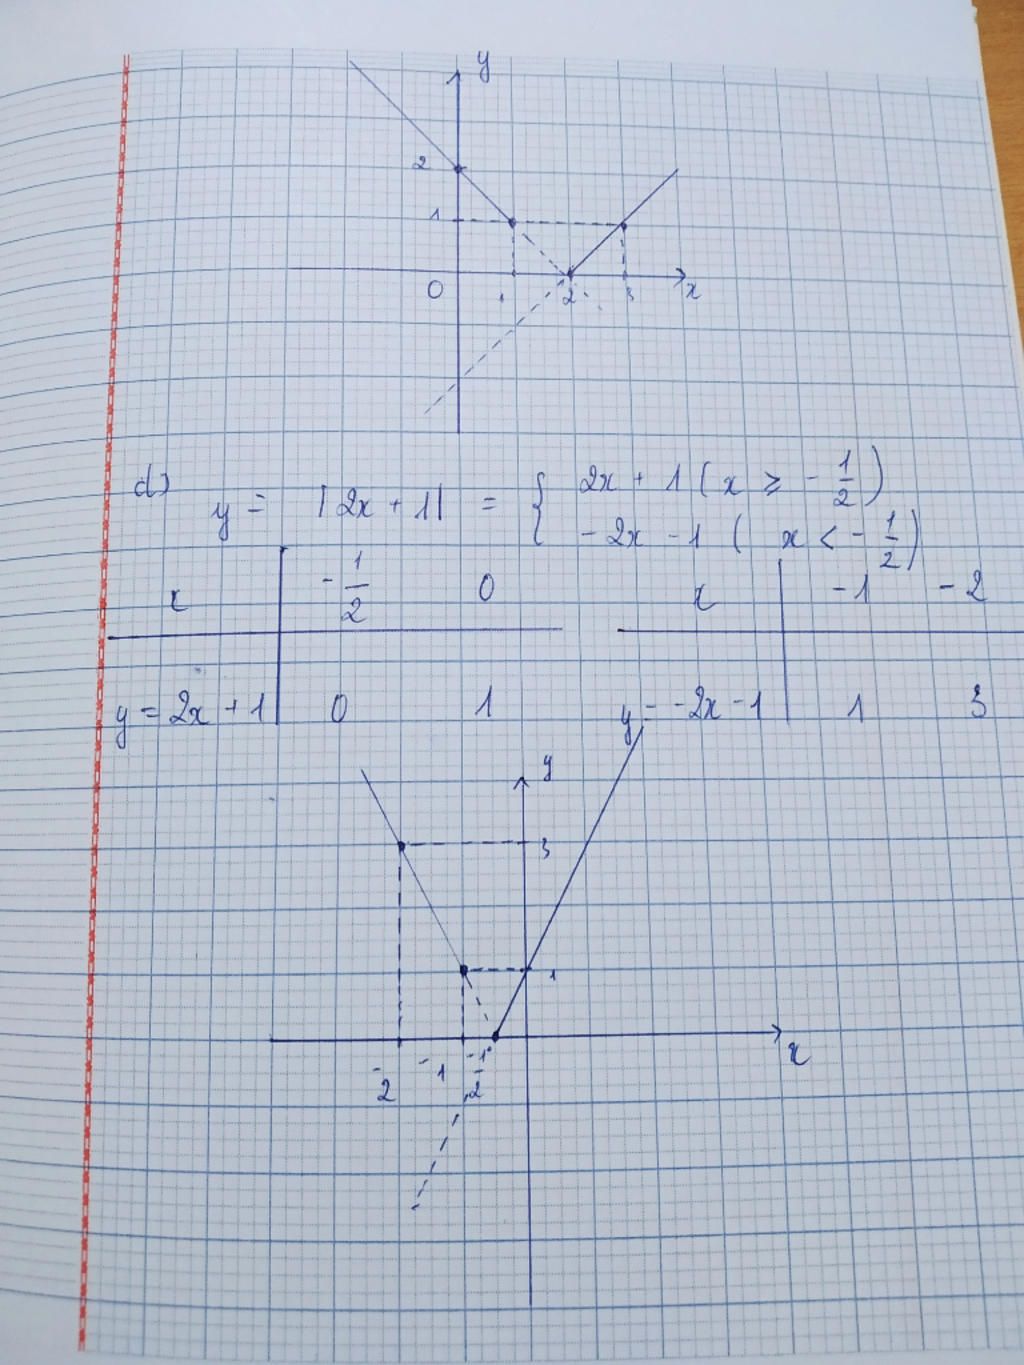 y
2
1
0 1 2 3 x
d) y = |2x + 1| = { 2x + 1 ( x ⩾ - 1/2 )
- 2x - 1 ( x < - 1/2 )
x - 1/2 0 x -1 -2
y = 2x + 1 0 1 y = -2x -1 1 3
y
3
1
x
-2 -1 -1/2